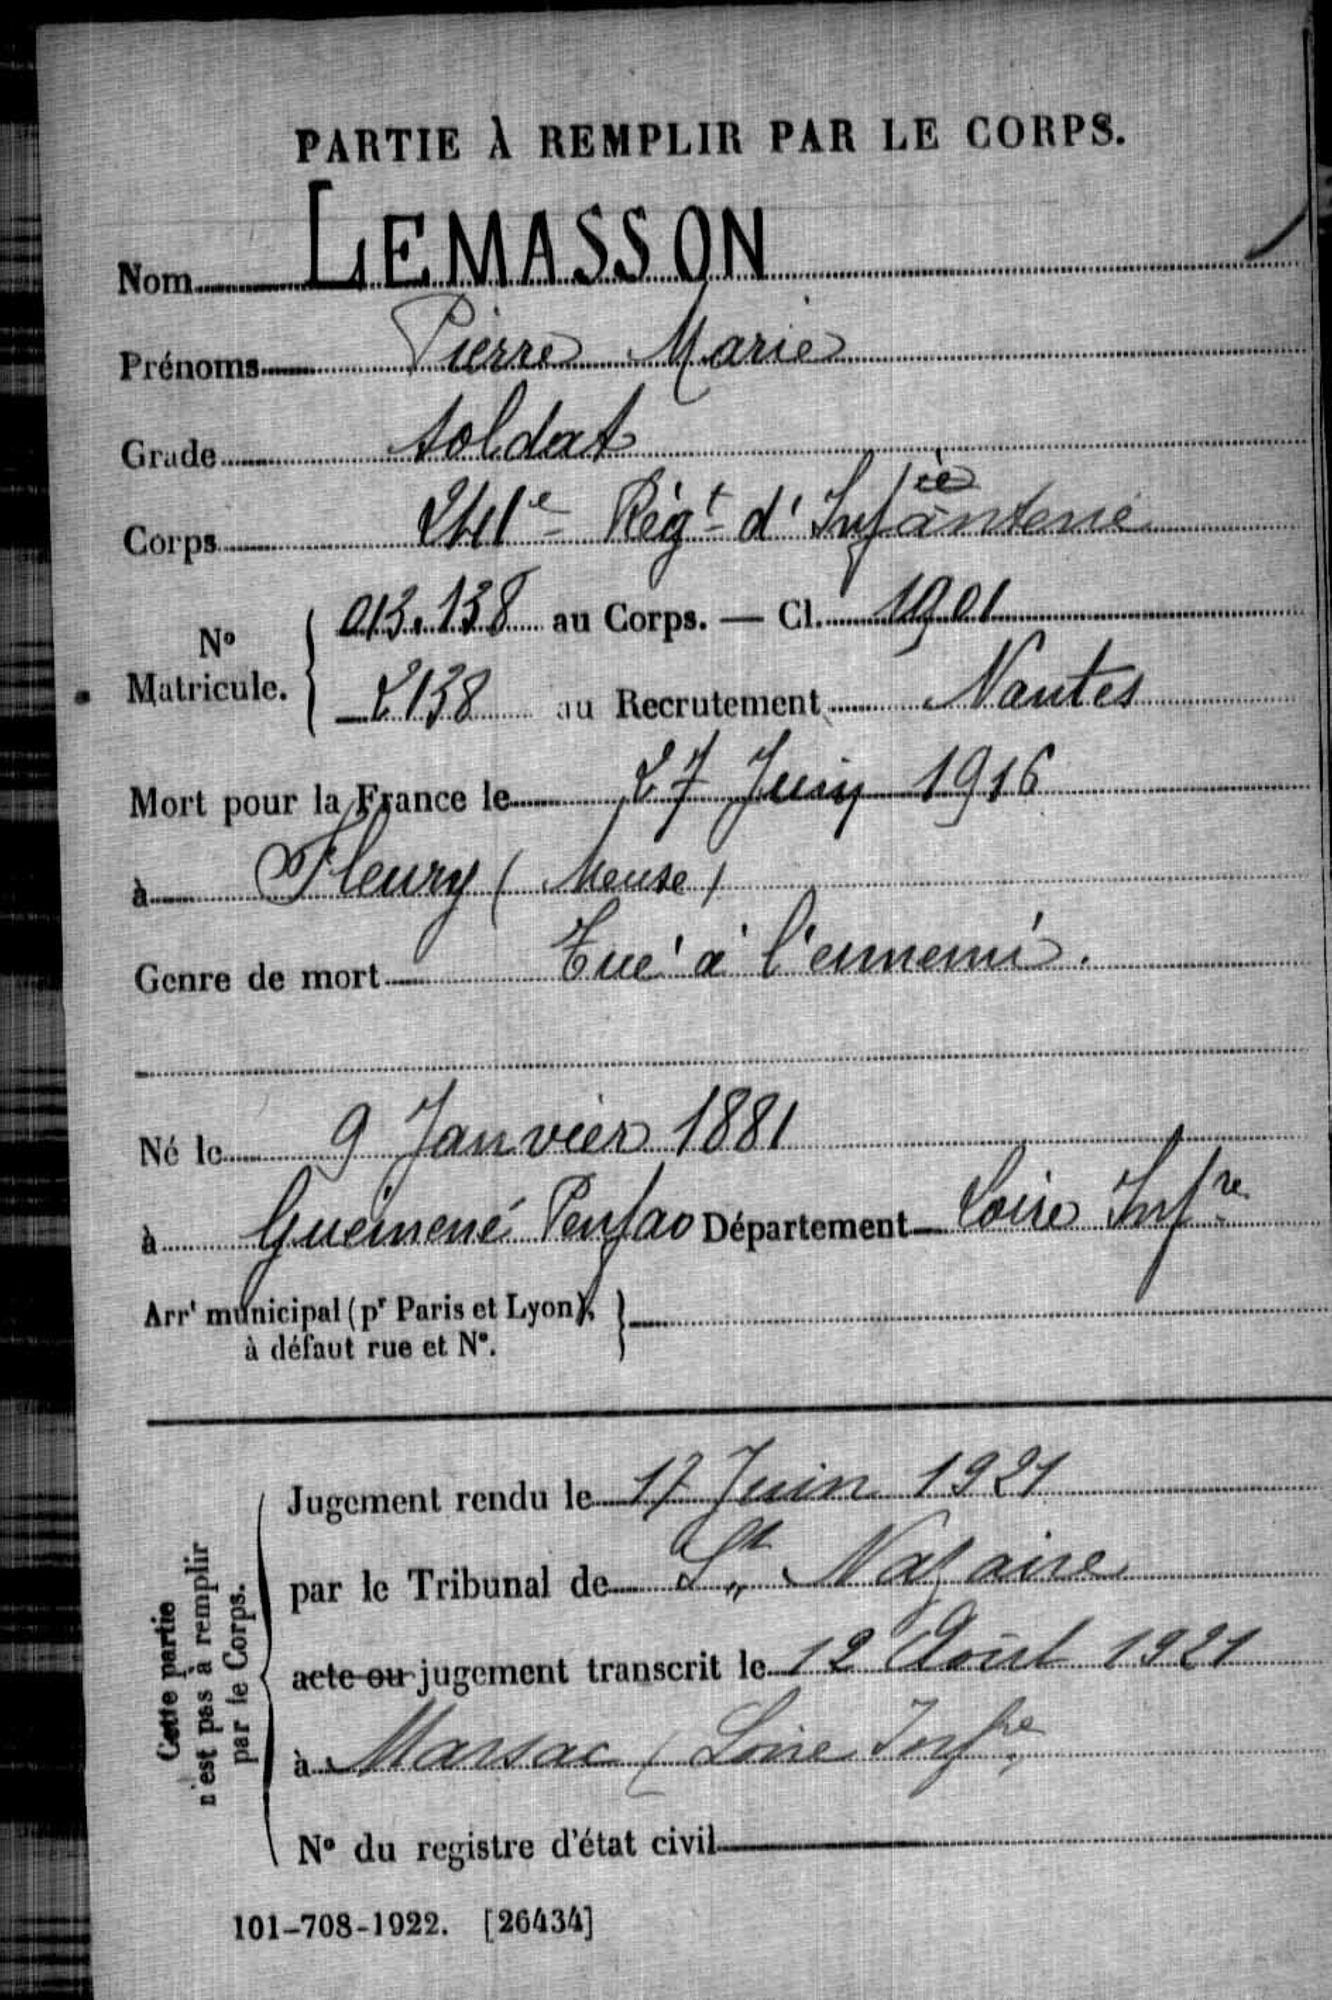 PARTIE À REMPLIR PAR LE CORPS.
Nom LEMASSON
Prénoms Pierre Marie
Grade soldat
Corps 241e Régt d'Infanterie
N° Matricule. { 013.138 au Corps. — Cl. 1901
2138 au Recrutement Nantes
Mort pour la France le 27 Juin 1916
à Fleury (Meuse)
Genre de mort Tué à l'ennemi.
Né le 9 Janvier 1881
à Guémené Penfao Département Loire Infre
Arrt municipal (pr Paris et Lyon), }
à défaut rue et N°.
Cette partie
n'est pas à remplir
par le Corps.
Jugement rendu le 17 Juin 1921
par le Tribunal de St Nazaire
acte ou jugement transcrit le 12 Août 1921
à Marsac (Loire Infre)
N° du registre d'état civil
101-708-1922. [26434]